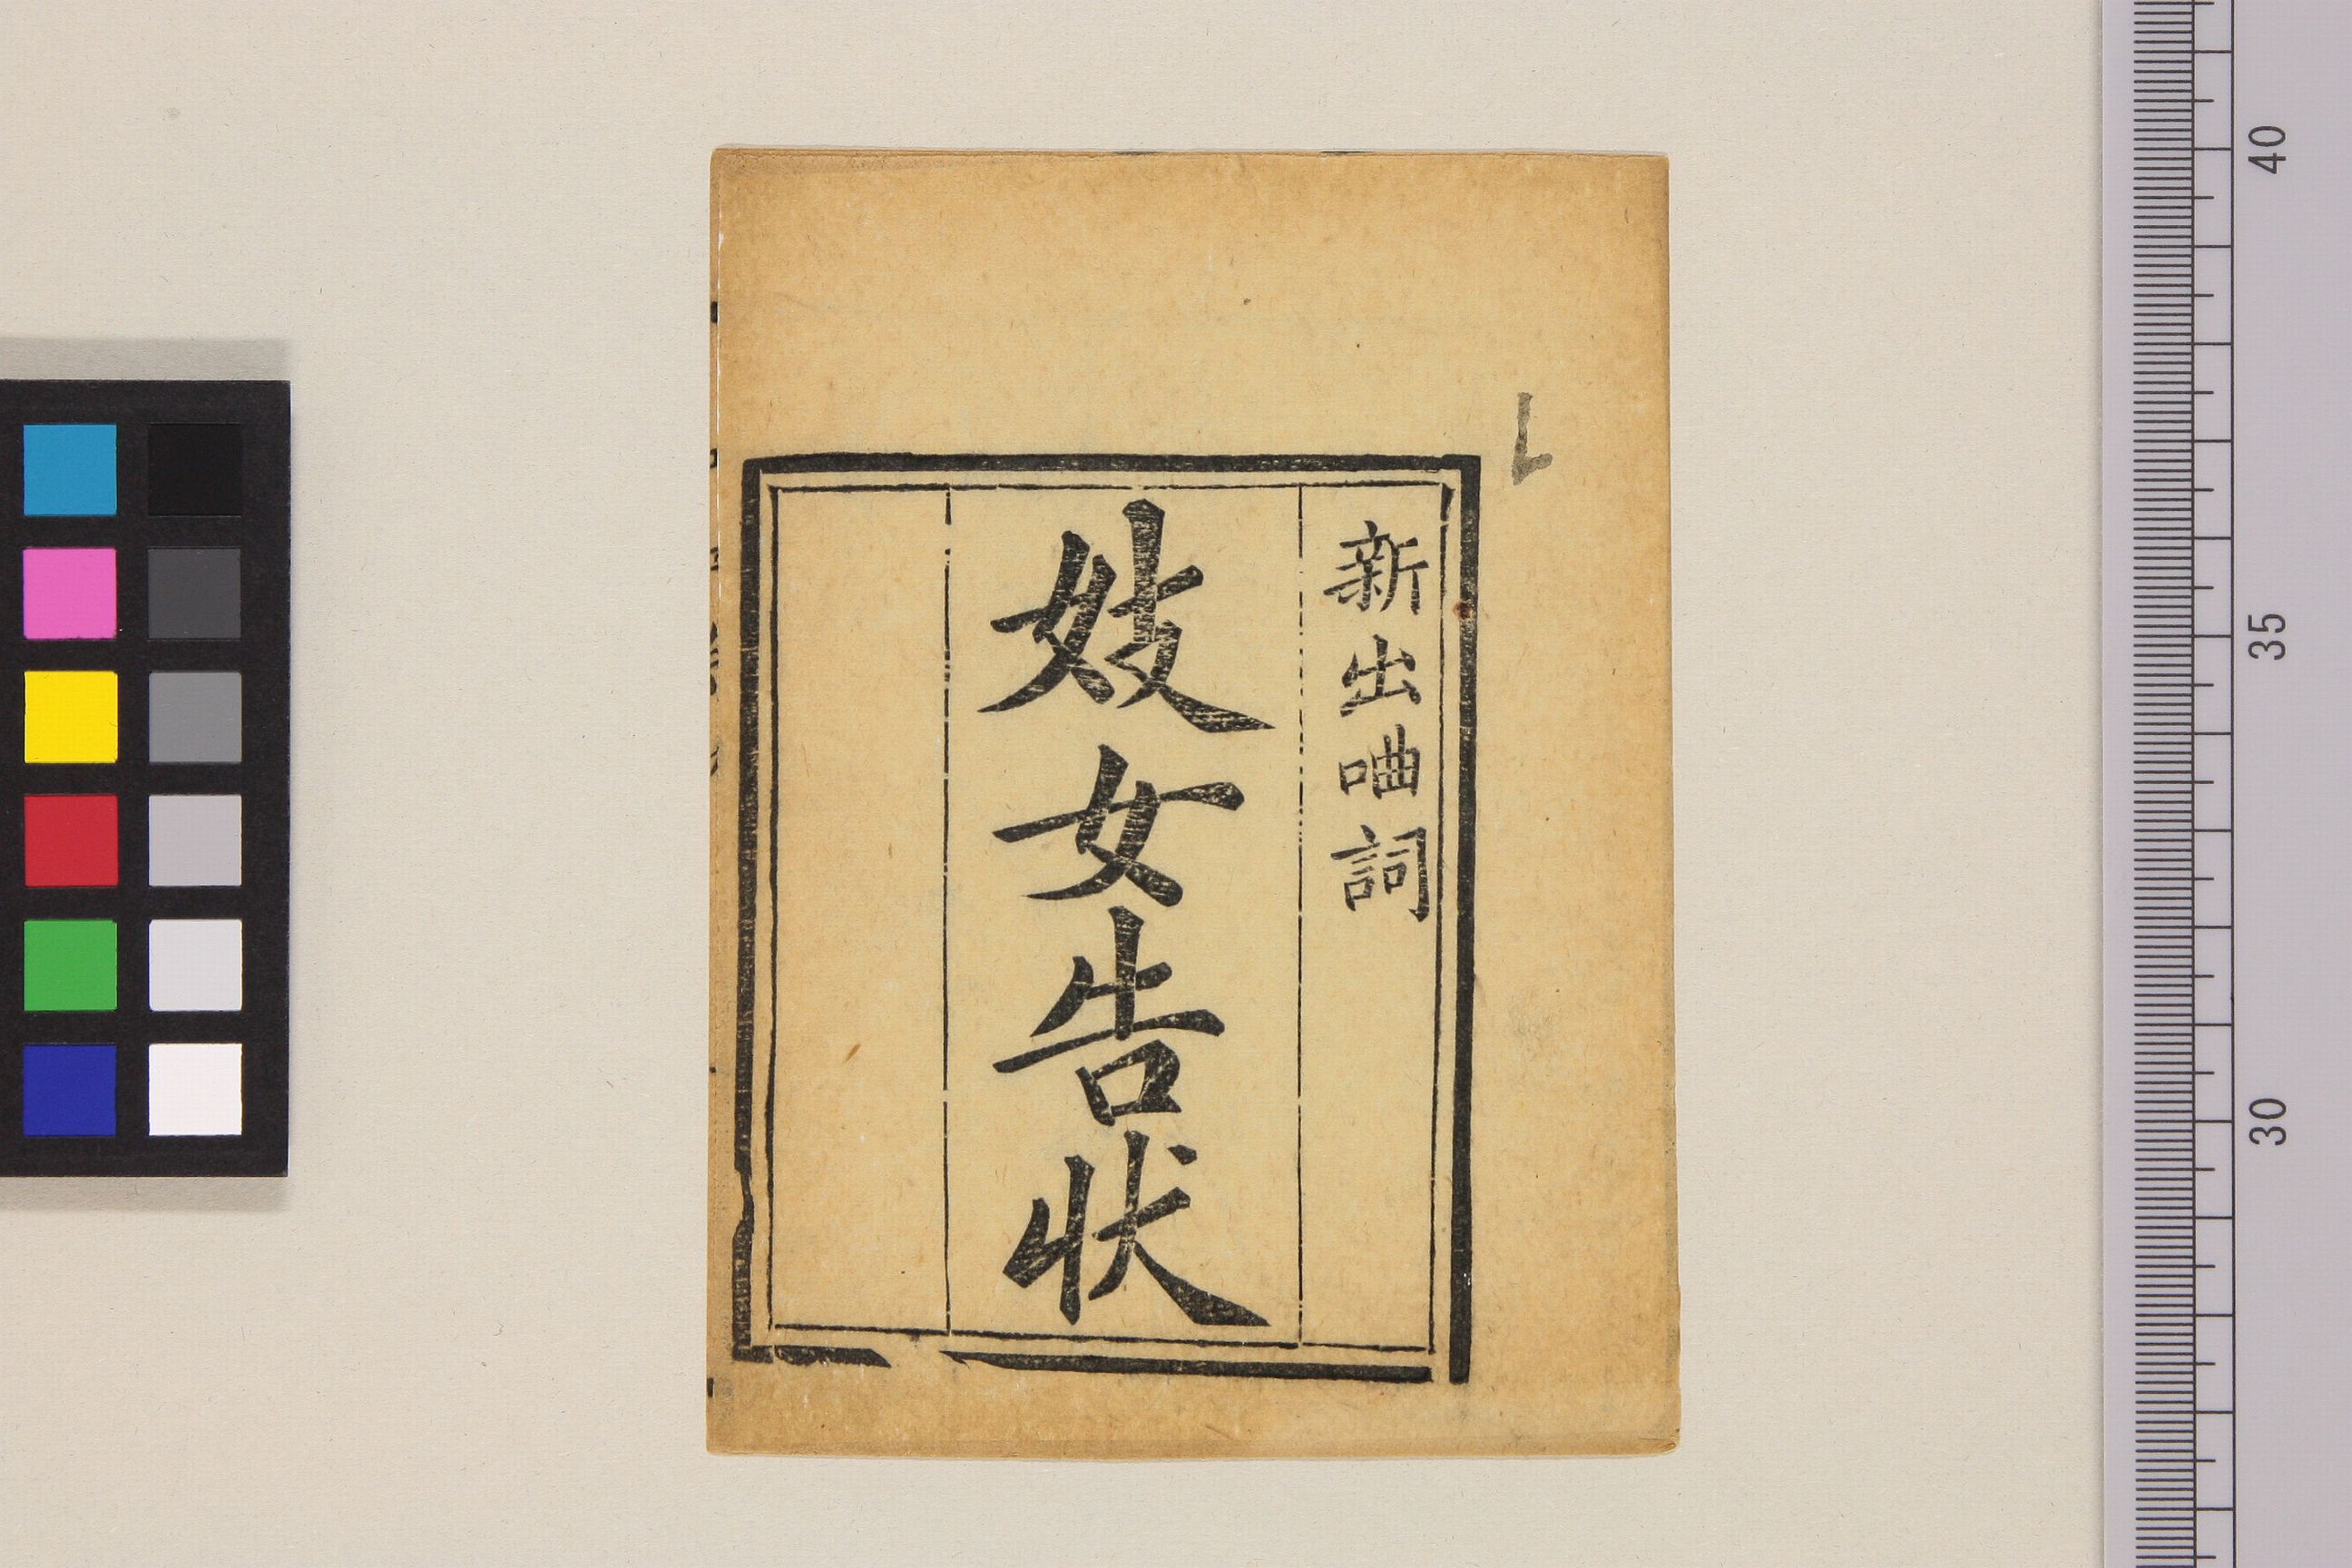 新出㖆詞
妓女告狀
40
35
30